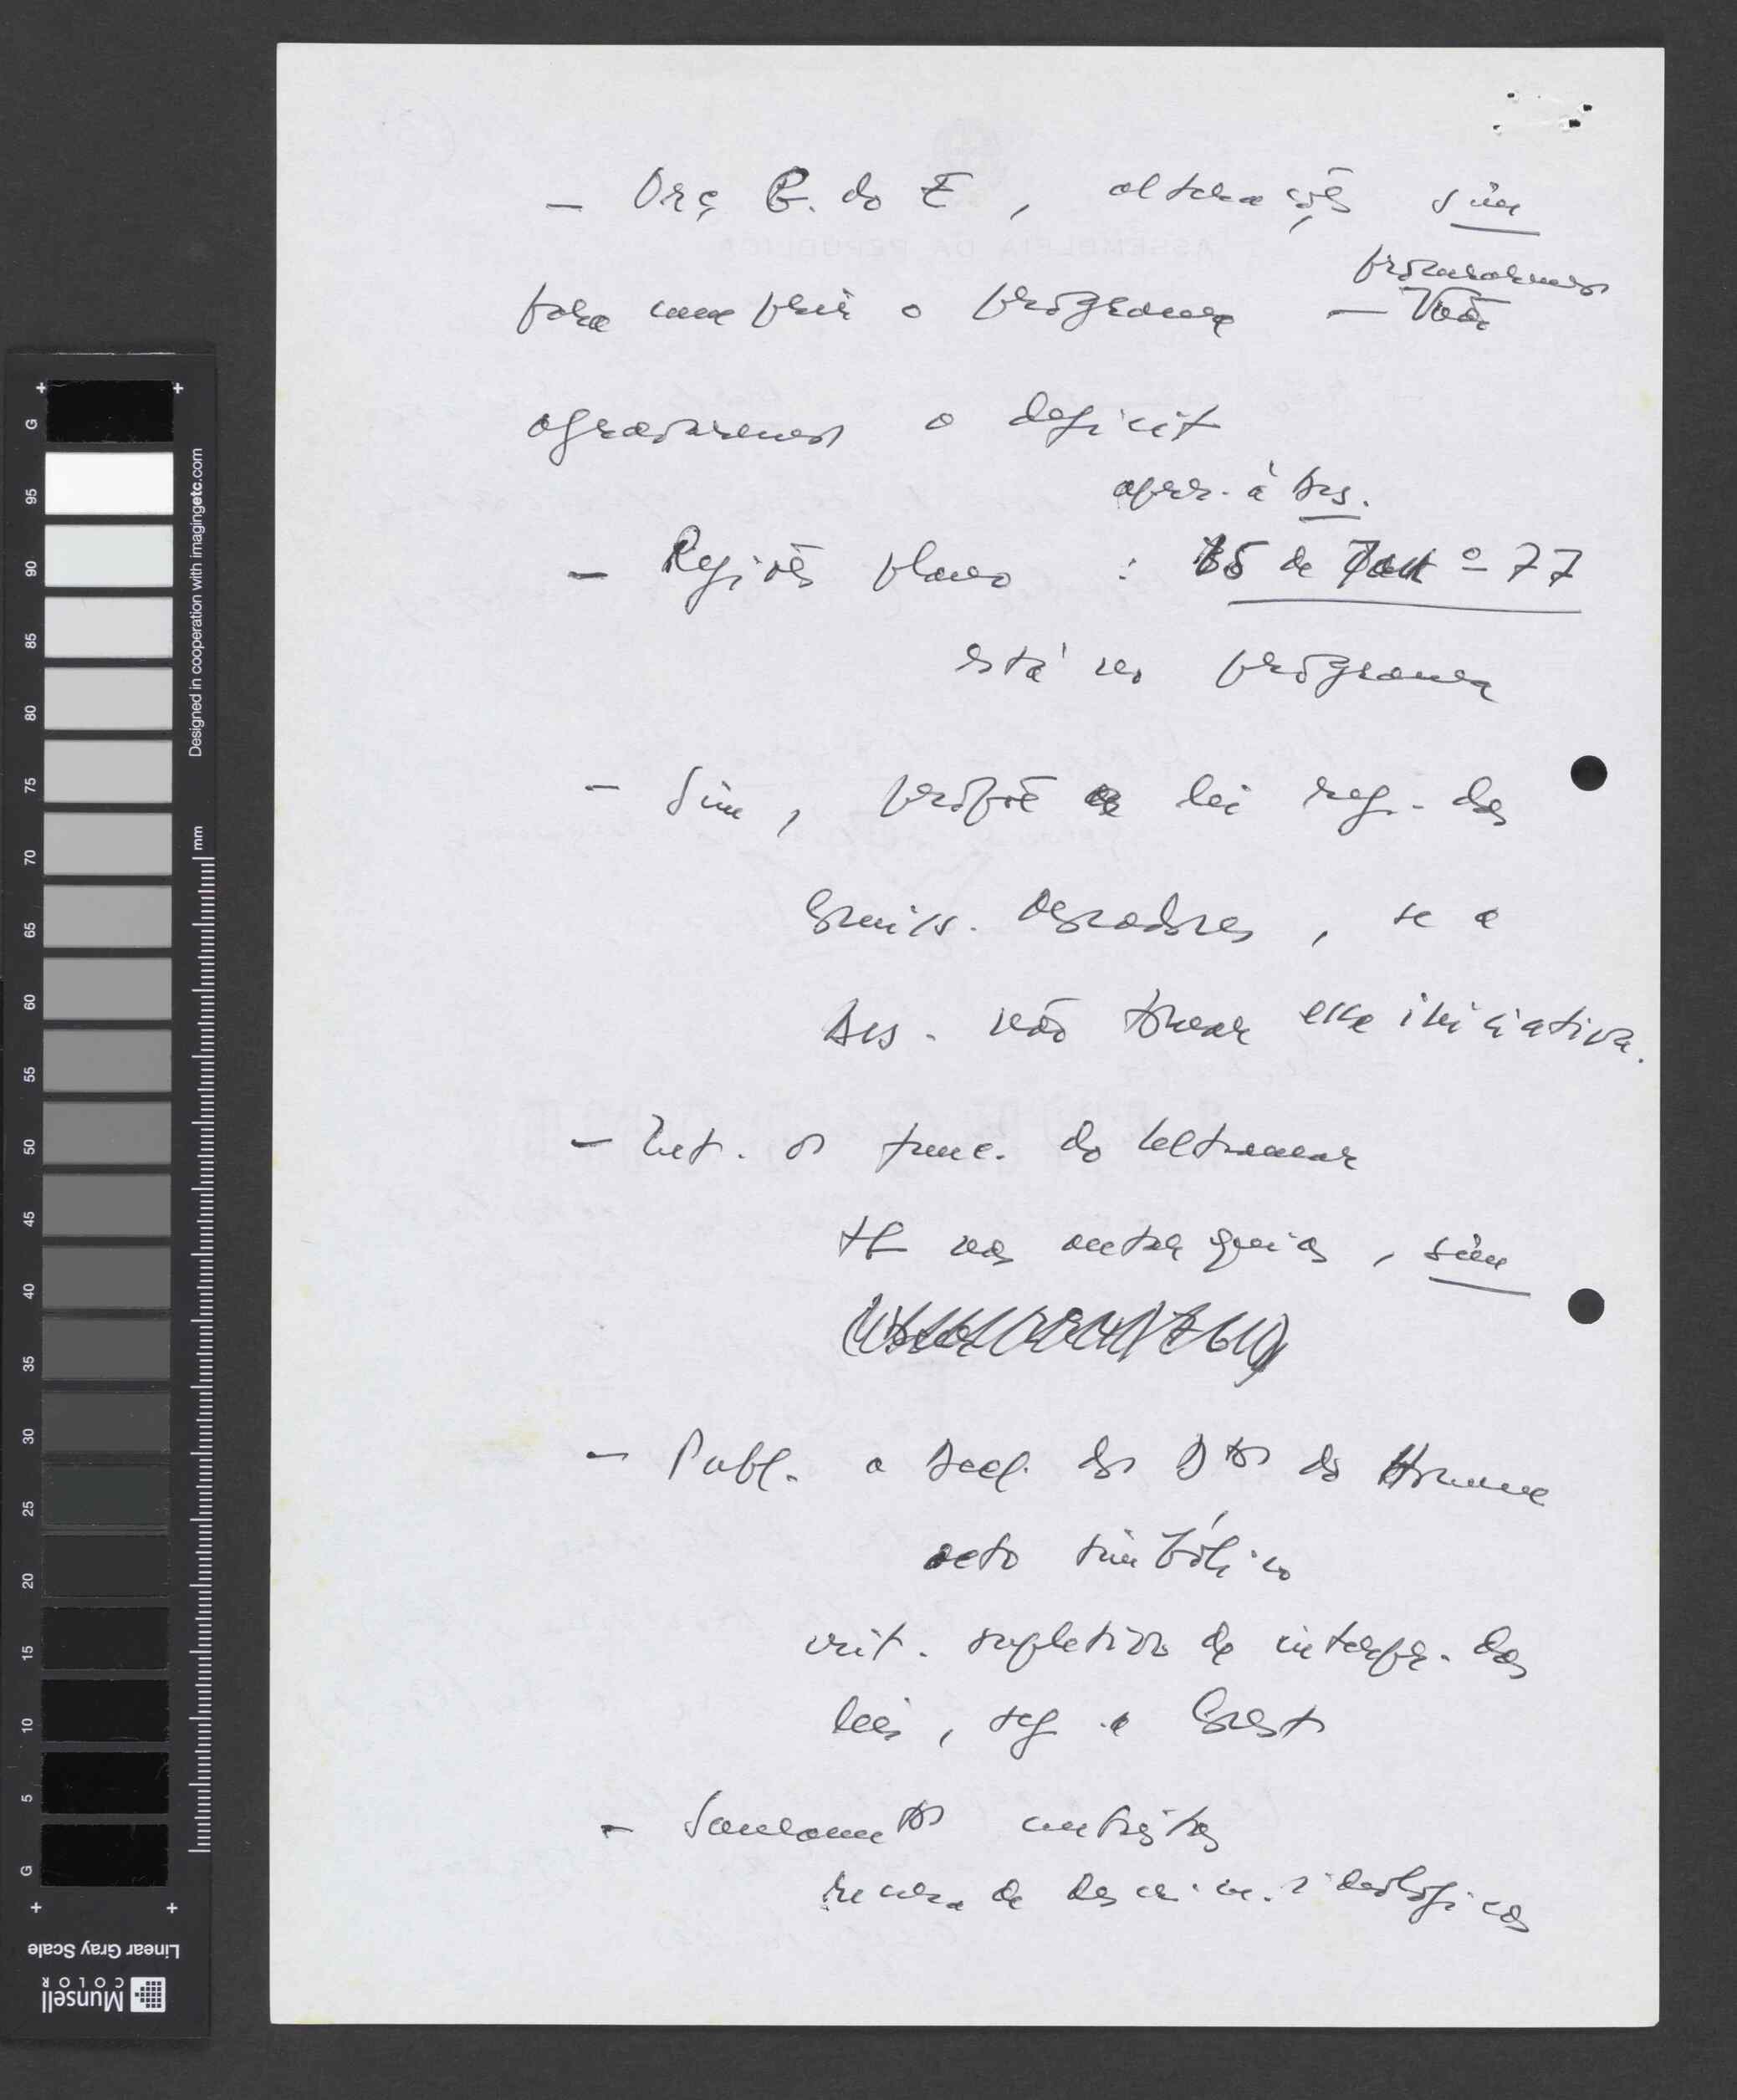 - Orç G. do E, alterações sim
procuraremos
para cumprir o programa - Não
agravaremos o deficit
apr. à Ass.
- Regiões plano : 15 de Out.º 77
está no programa
- Sim, propõe a lei reg. das
comiss. moradores, se a
Ass. não tomar essa iniciativa.
- Int. os func. do Ultramar
tb nas autarquias, sim
- Publ. a Decl. dos Dtos do Homem
acto simbólico
crit. supletivo de interpr. das
leis, seg a Const
- Saneamtos
recusa de descrim. ideológicas
G
95
90
85
80
75
70
65
60
55
50
45
40
35
30
25
20
15
10
5
G
Designed in cooperation with imagingetc.com
mm
Linear Gray Scale
Munsell
COLOR
ASSEMBLEIA DA REPÚBLICA